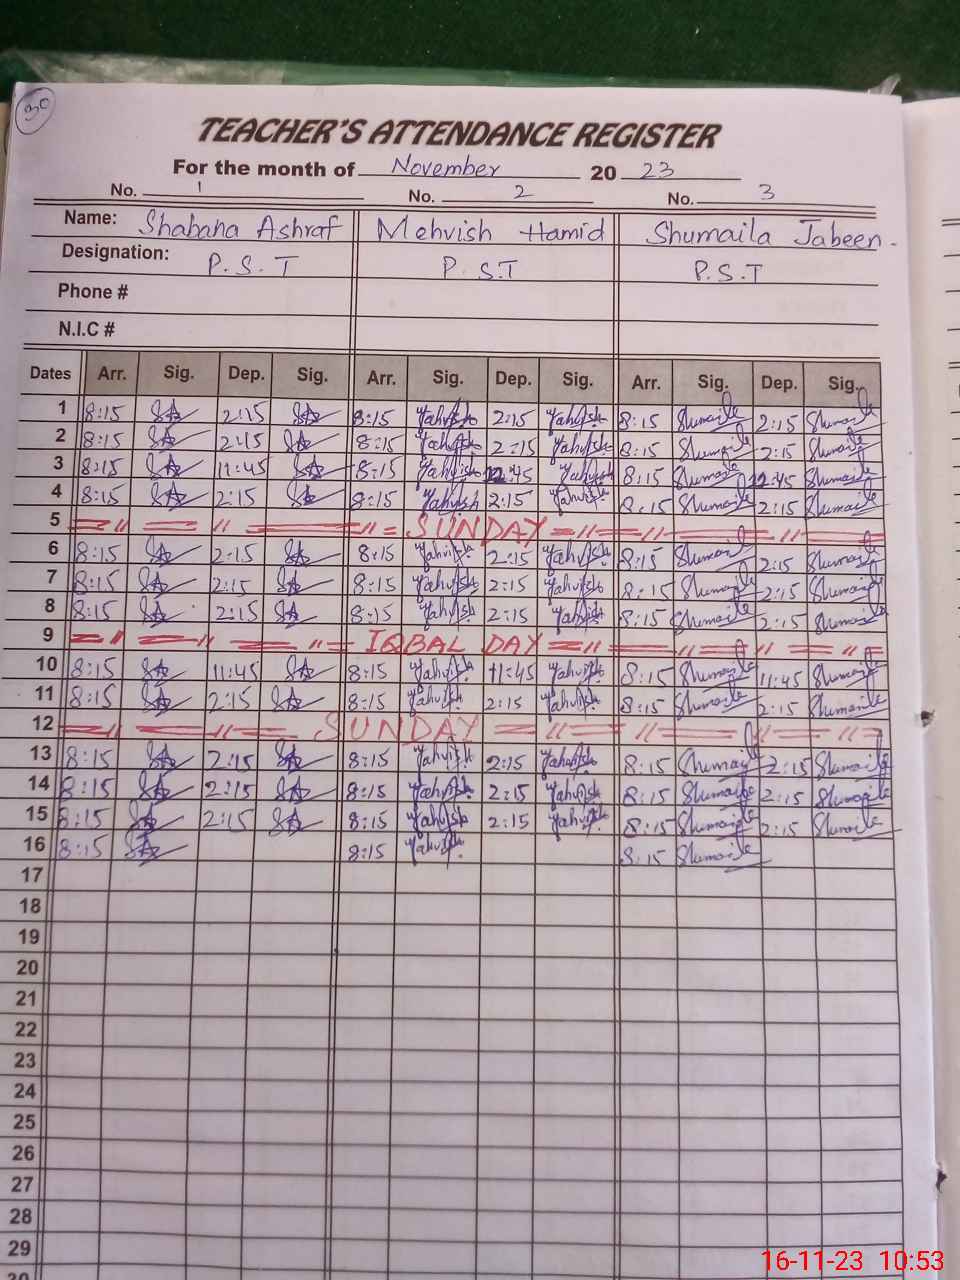 30
TEACHER'S ATTENDANCE REGISTER
For the month of November 20 23
No. 1 No. 2 No. 3
Name: Shabana Ashraf Mehvish Hamid Shumaila Jabeen.
Designation: P.S.T P.S.T P.S.T
Phone #
N.I.C #
Dates Arr. Sig. Dep. Sig. Arr. Sig. Dep. Sig. Arr. Sig. Dep. Sig.
1 8:15 2:15 8:15 2:15 8:15 Shumaila 2:15 Shumaila
2 8:15 2:15 8:15 2:15 8:15 Shumaila 2:15 Shumaila
3 8:15 11:45 8:15 12:45 8:15 Shumaila 12:45 Shumaila
4 8:15 2:15 8:15 2:15 8:15 Shumaila 2:15 Shumaila
5 = " = " = " = SUNDAY = " = " = " =
6 8:15 2:15 8:15 2:15 8:15 Shumaila 2:15 Shumaila
7 8:15 2:15 8:15 2:15 8:15 Shumaila 2:15 Shumaila
8 8:15 2:15 8:15 2:15 8:15 Shumaila 2:15 Shumaila
9 = " = " = " = IQBAL DAY = " = " = " =
10 8:15 11:45 8:15 11:45 8:15 Shumaila 11:45 Shumaila
11 8:15 2:15 8:15 2:15 8:15 Shumaila 2:15 Shumaila
12 = " = " = SUNDAY = " = " = " =
13 8:15 2:15 8:15 2:15 8:15 Shumaila 2:15 Shumaila
14 8:15 2:15 8:15 2:15 8:15 Shumaila 2:15 Shumaila
15 8:15 2:15 8:15 2:15 8:15 Shumaila 2:15 Shumaila
16 8:15 8:15 8:15 Shumaila
17
18
19
20
21
22
23
24
25
26
27
28
29
30
16-11-23 10:53